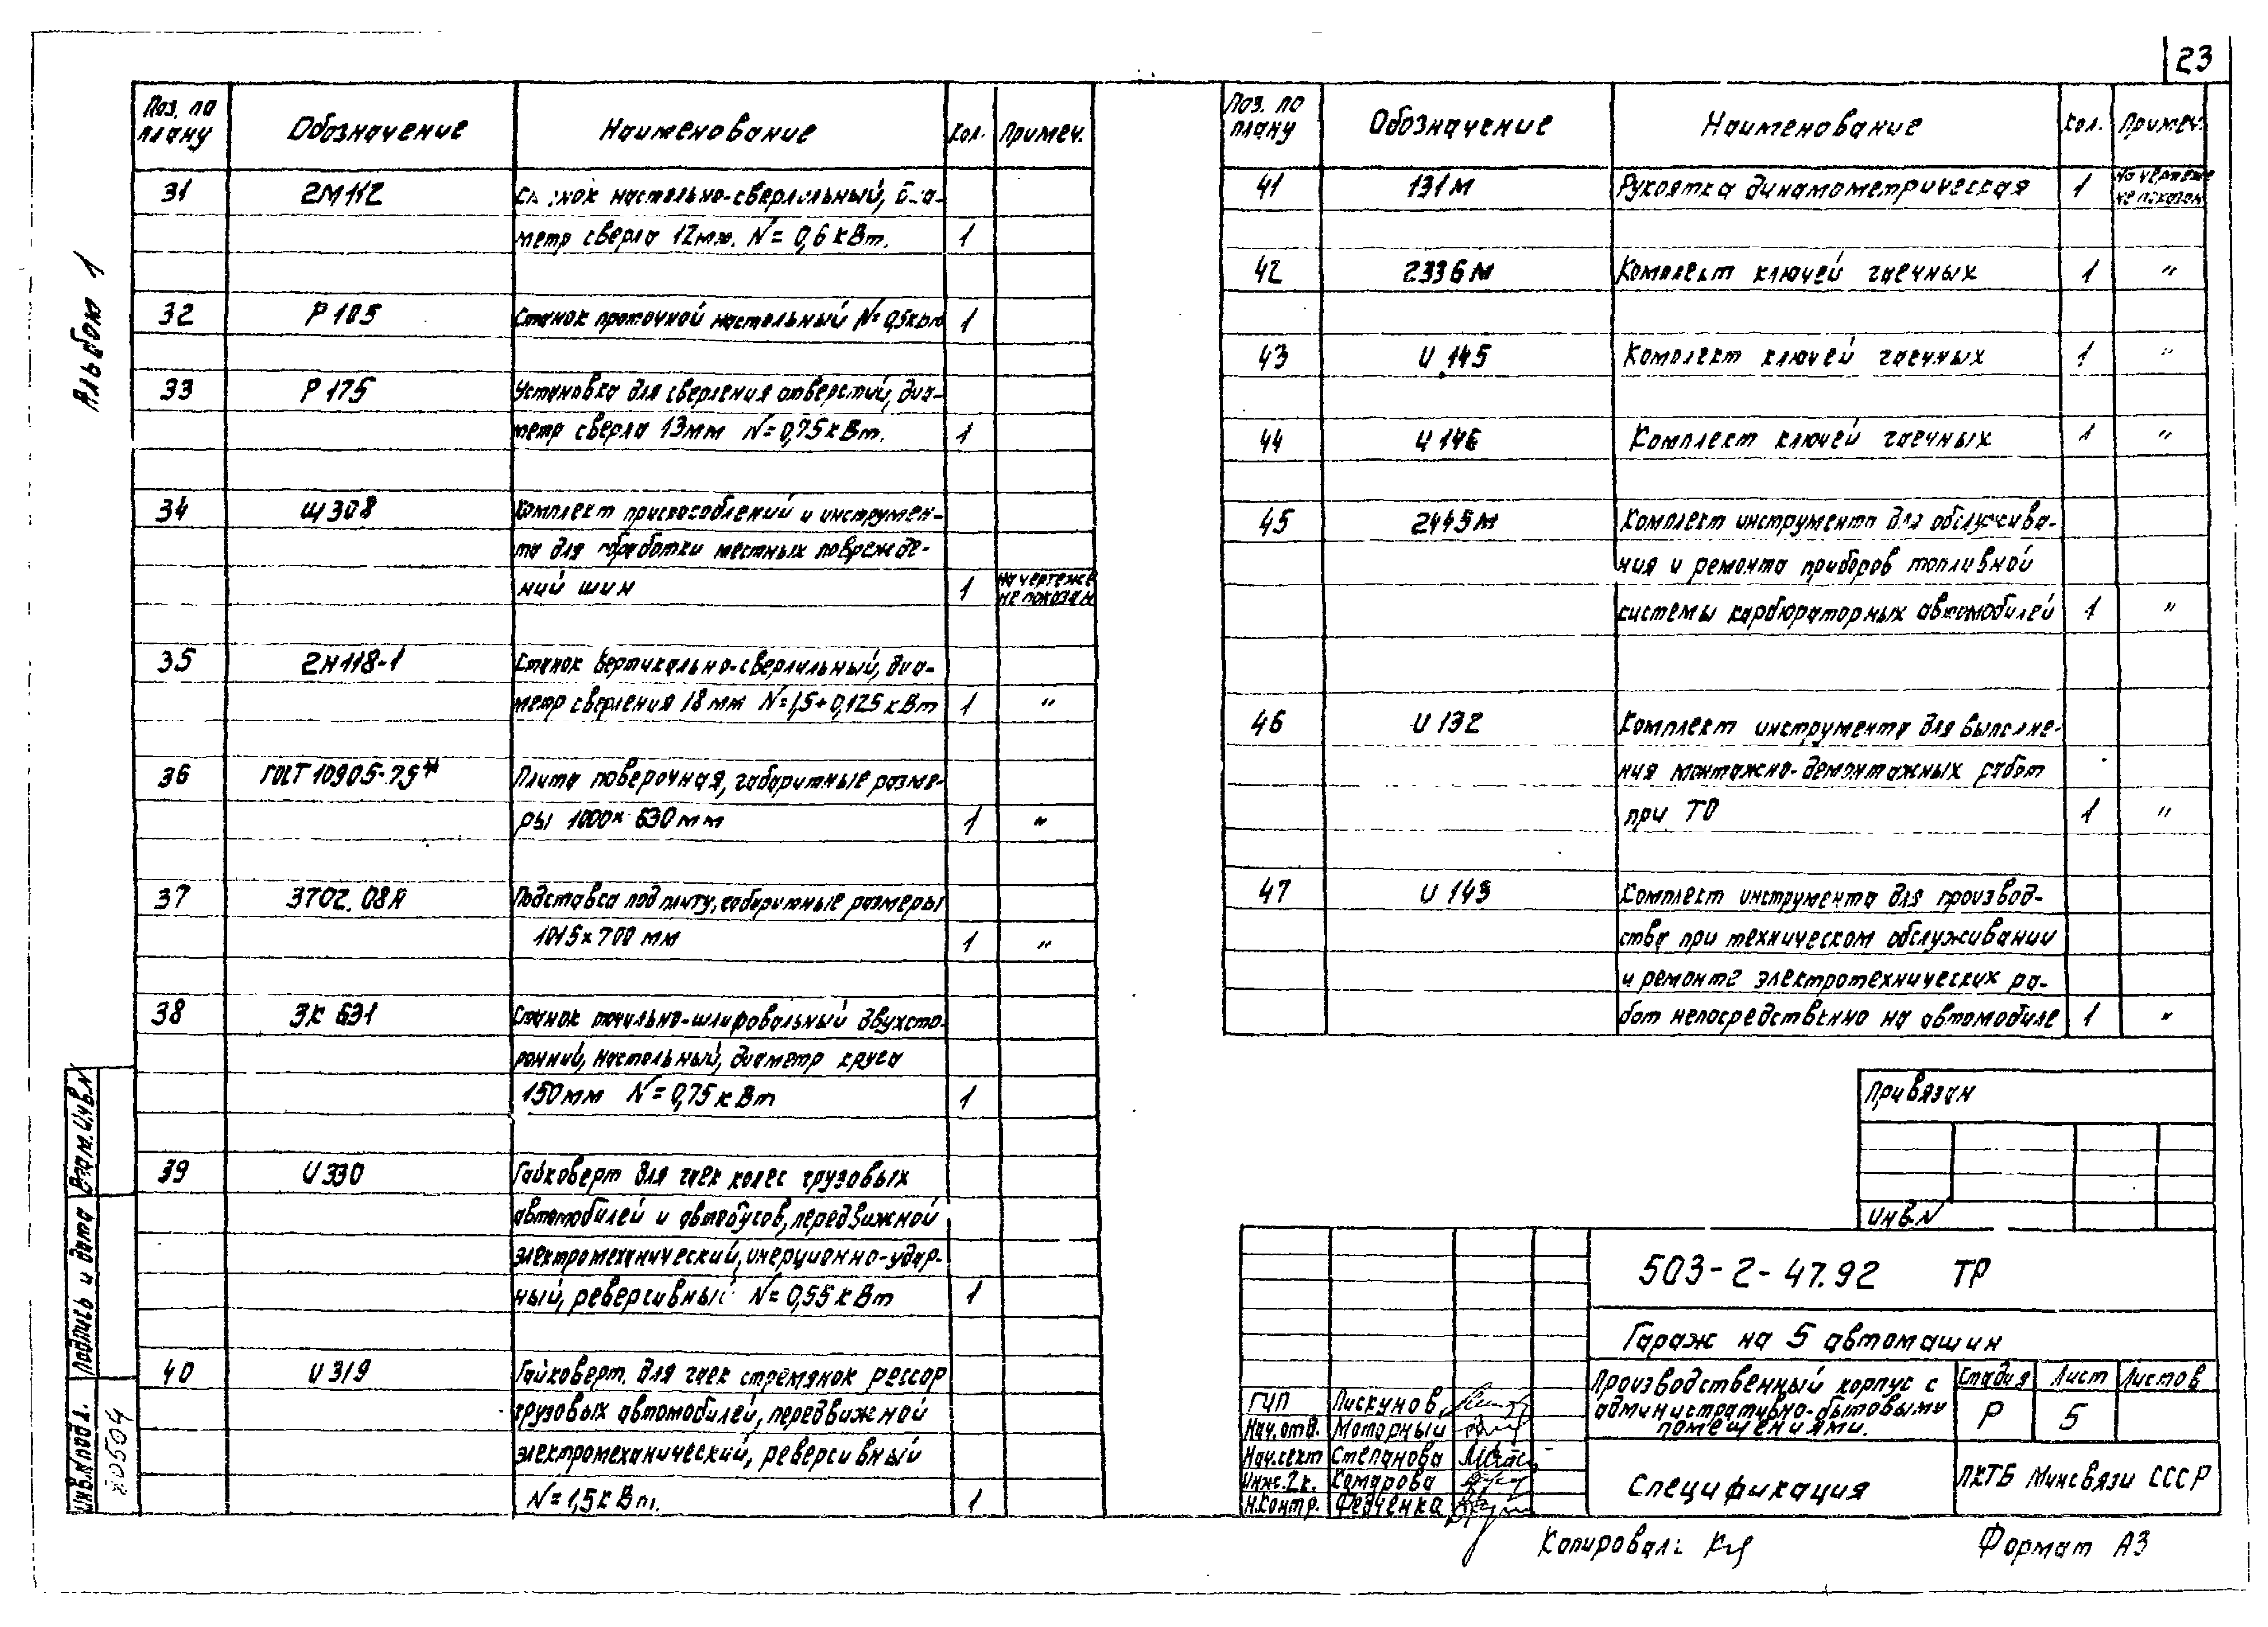 23
Альбом 1
Поз. по плану Обозначение Наименование Кол. Примеч.
31 2М112 настольно-сверлильный, диа-
метр сверла 12мм. N = 0,6 кВт. 1
32 Р 105 Станок проточной настольный N = 0,5кВт 1
33 Р 175 Установка для сверления отверстий, диа-
метр сверла 13мм N = 0,75 кВт. 1
34 Ш308 Комплект приспособлений и инструмен-
та для обработки местных поврежде-
ний шин 1 На чертеже не показан
35 2Н118-1 Станок вертикально-сверлильный, диа-
метр сверления 18 мм N=1,5+0,125 кВт 1 "
36 ГОСТ 10905-75* Плита поверочная, габаритные разме-
ры 1000×630 мм 1 "
37 3702.08А Подставка под плиту, габаритные размеры
1015×700 мм 1 "
38 3К 631 Станок точильно-шлифовальный двухсто-
ронний, настольный, диаметр круга
150мм N = 0,75 кВт 1
39 И330 Гайковерт для гаек колес грузовых
автомобилей и автобусов, передвижной
электромеханический, инерционно-удар-
ный, реверсивный N = 0,55 кВт 1
40 И319 Гайковерт для гаек стремянок рессор
грузовых автомобилей, передвижной
электромеханический, реверсивный
N = 1,5 кВт. 1
Поз. по плану Обозначение Наименование Кол. Примеч.
41 131М Рукоятка динамометрическая 1 На чертеже не показан
42 2336М Комплект ключей гаечных 1 "
43 И 145 Комплект ключей гаечных 1 "
44 И 146 Комплект ключей гаечных 1 "
45 2445М Комплект инструмента для обслужива-
ния и ремонта приборов топливной
системы карбюраторных автомобилей 1 "
46 И 132 Комплект инструмента для выполне-
ния монтажно-демонтажных работ
при ТО 1 "
47 И 143 Комплект инструмента для производ-
ства при техническом обслуживании
и ремонте электротехнических ра-
бот непосредственно на автомобиле 1 "
Привязан
Инв.N
503-2-47.92 ТР
Гараж на 5 автомашин
Производственный корпус с
административно-бытовыми
помещениями.
Стадия Лист Листов
Р 5
ГИП Пискунов
Нач.отд. Моторный
Нач.сект Степанова
Инж.2к. Комарова
Н.контр. Федченка
Спецификация
ПКТБ Минсвязи СССР
Копировал:
Формат А3
Взам.Инв.N
Подпись и дата
Инв.N подл.
20504